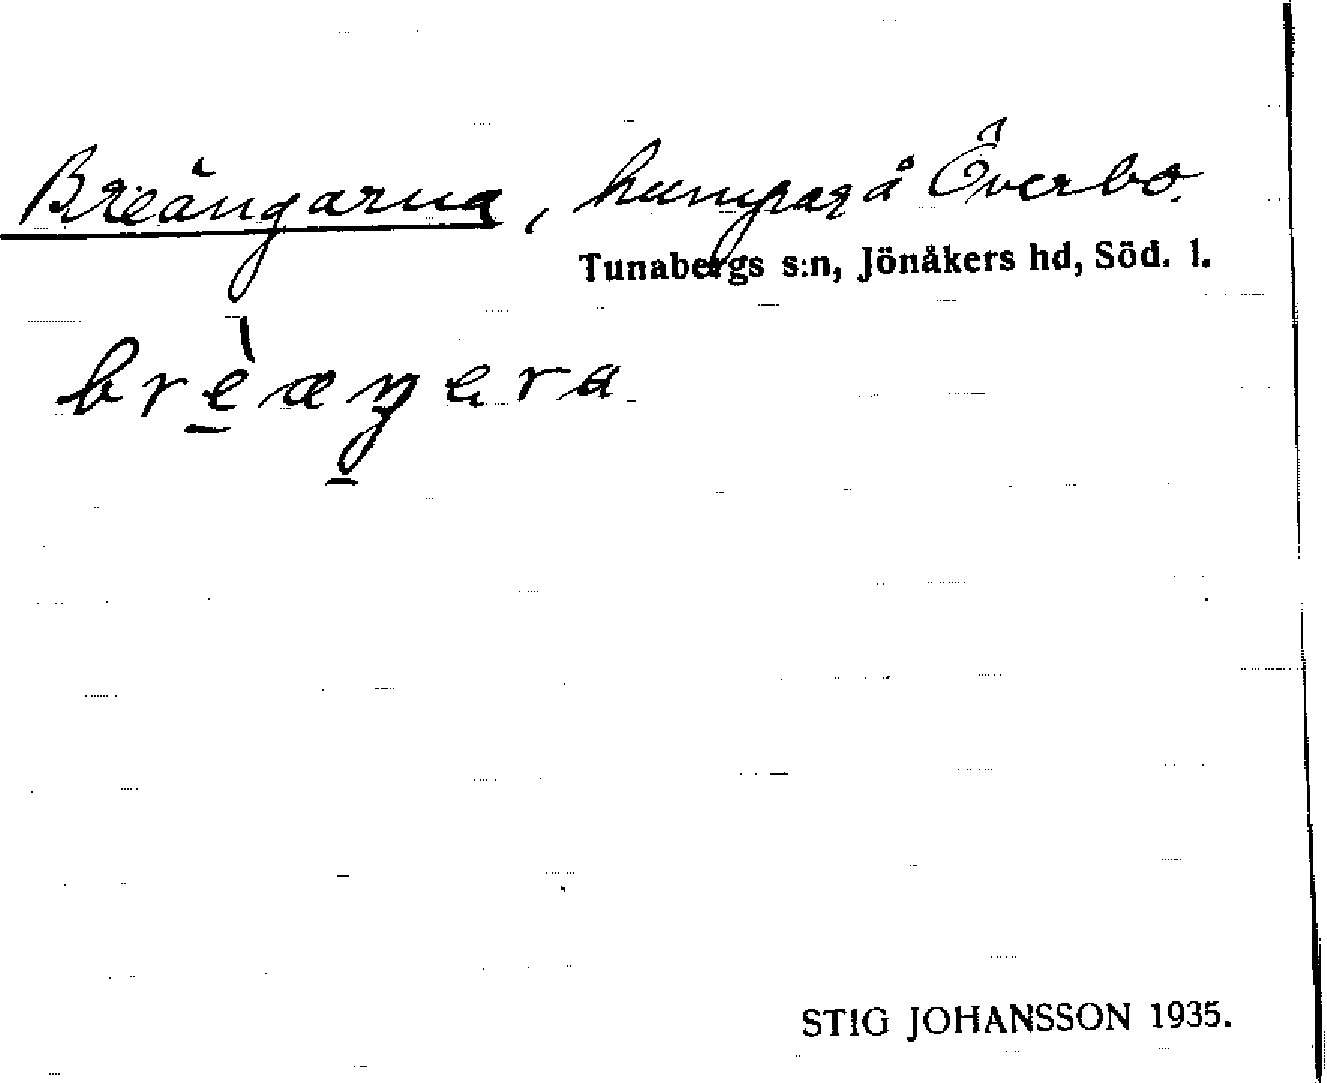 Breängarna, å Överbo.
Tunabergs s:n, Jönåkers hd, Söd. l.
brèæŋera
STIG JOHANSSON 1935.